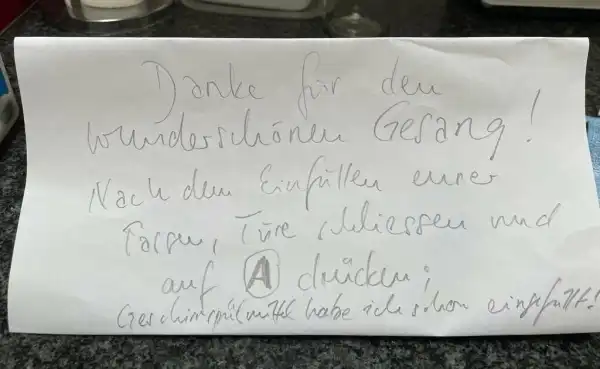 Danke für den
wunderschönen Gesang!
Nach dem Einfüllen eurer
Tassen, Türe schliessen und
auf A drücken;
Geschirrspülmittel habe ich schon eingefüllt!